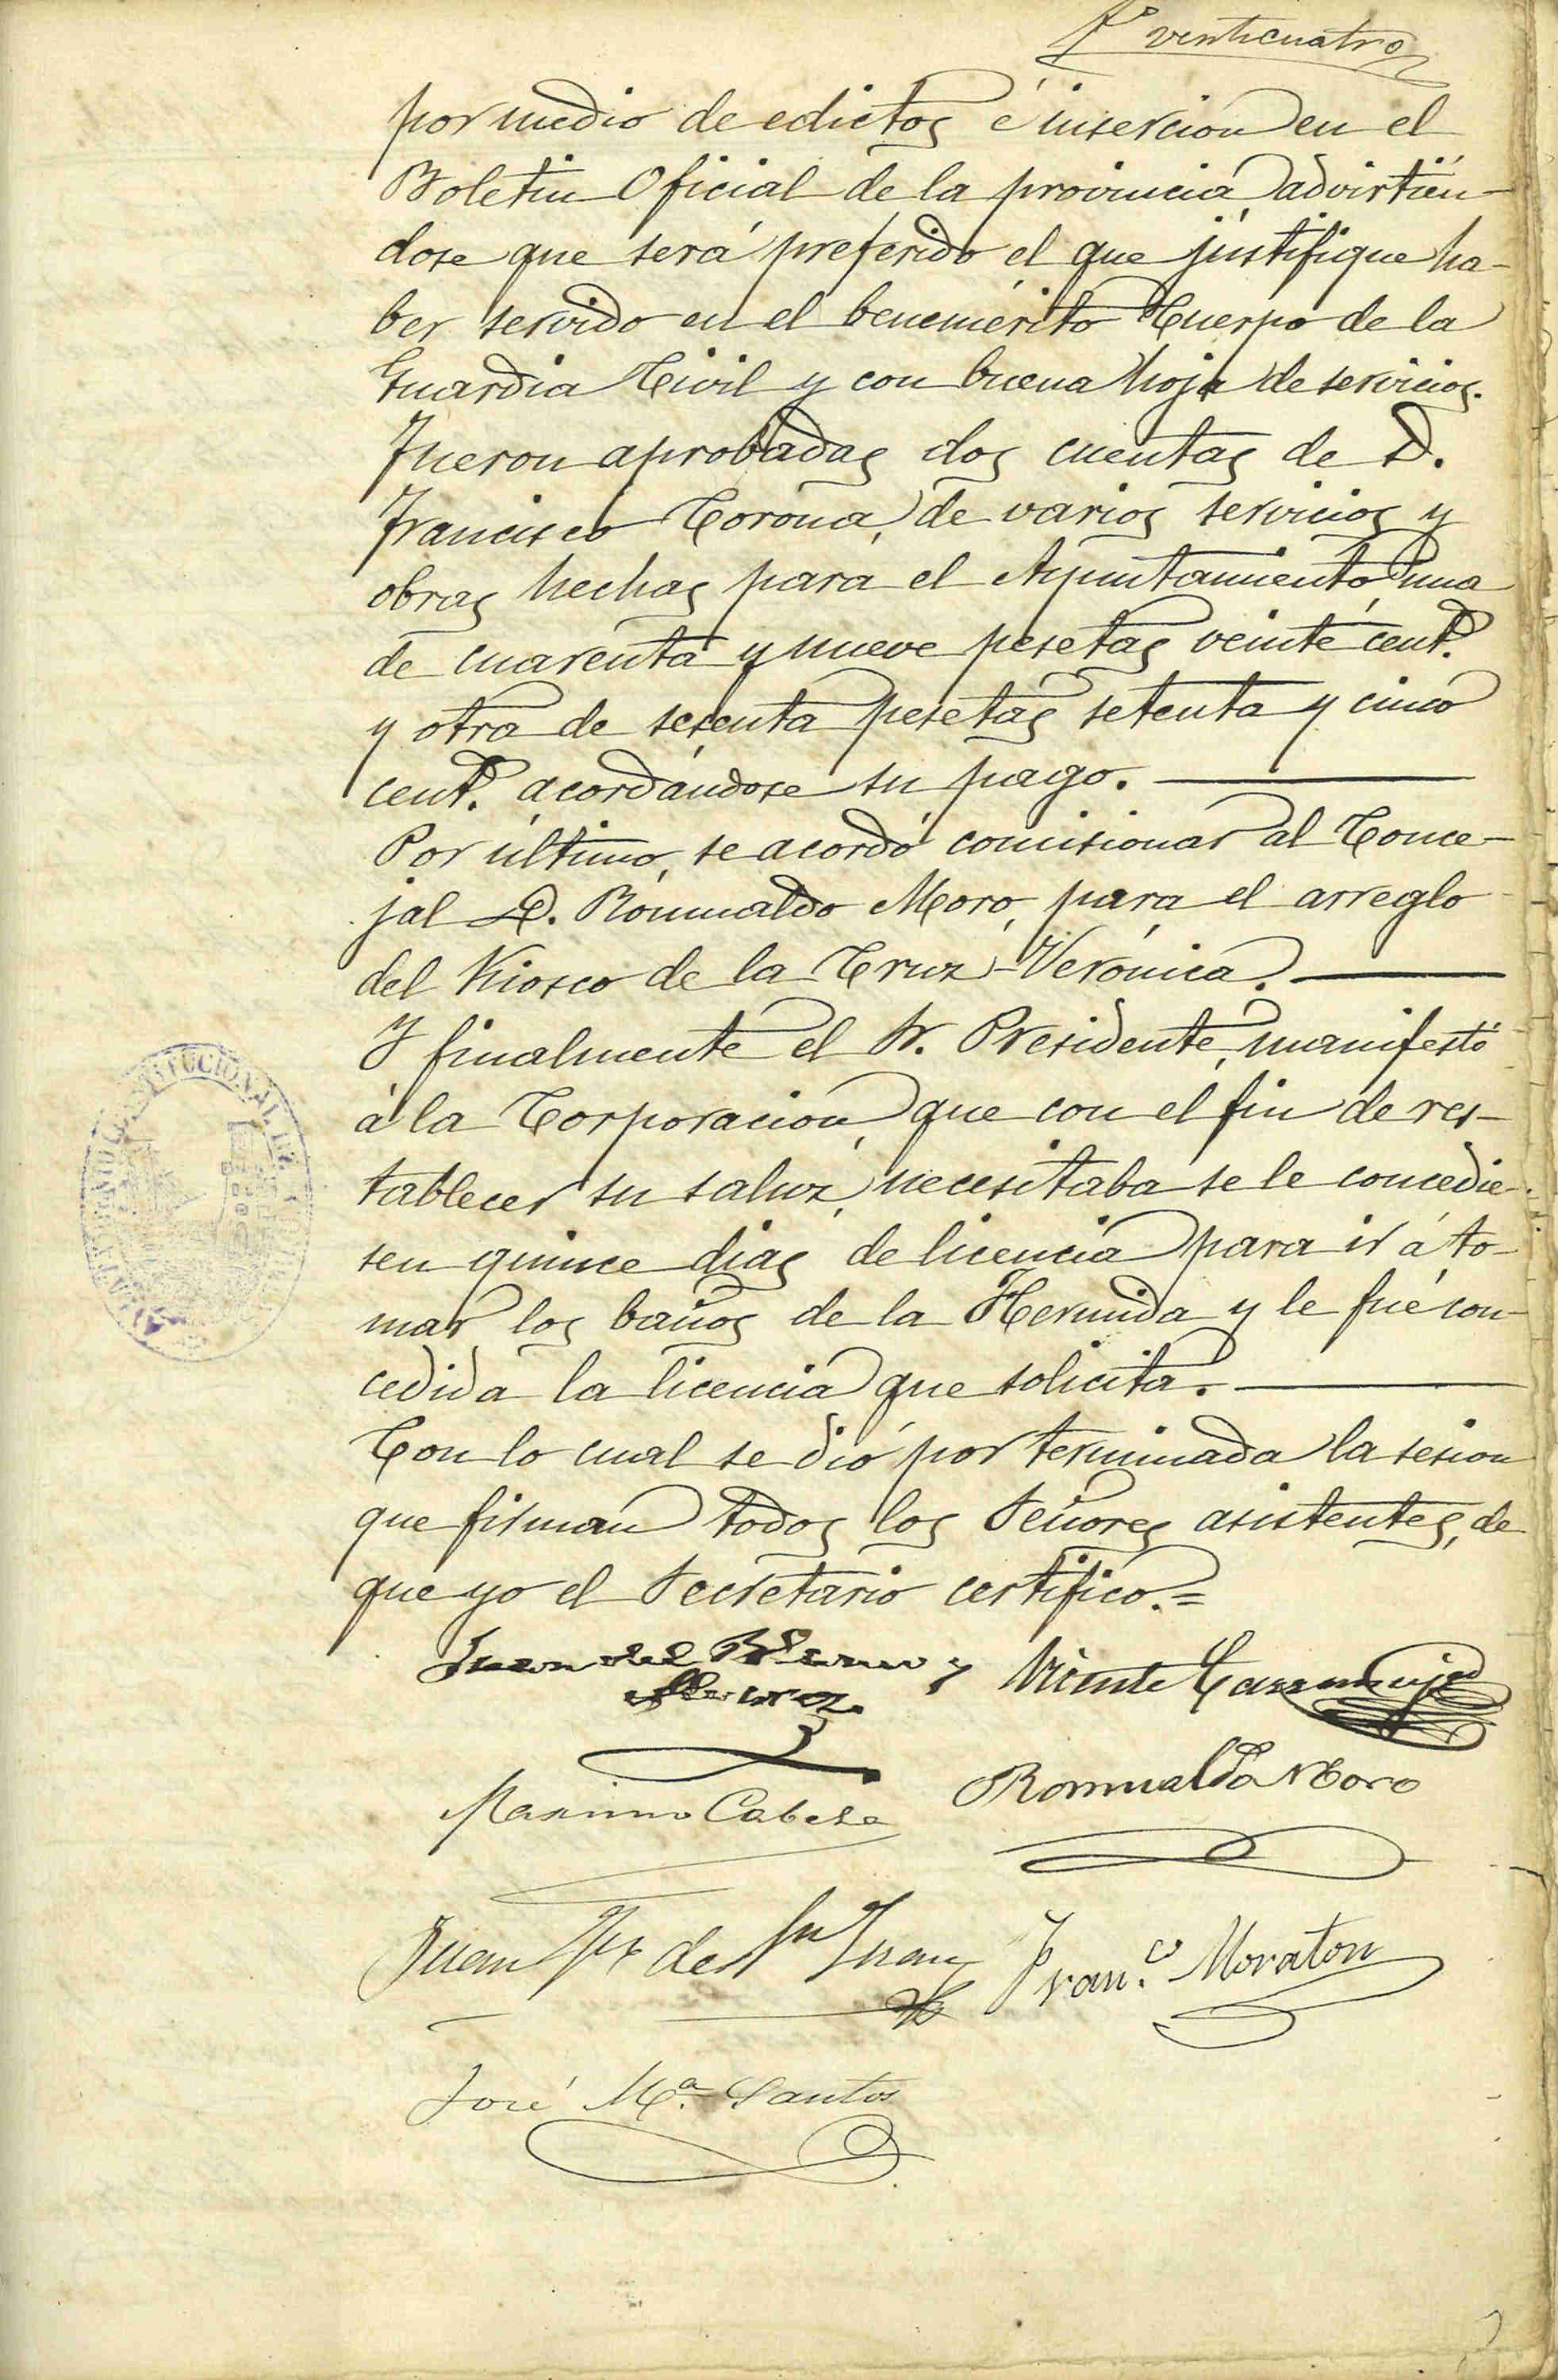 fº venticuatro
por medio de edictos é insercion en el
Boletin Oficial de la provincia, advirtién-
dose que será preferido el que justifique ha-
ber servido en el benemérito Cuerpo de la
Guardia Civil y con buena hoja de servicios.
Fueron aprobadas dos cuentas de D.
Francisco Corona, de varios servicios y
obras hechas para el Ayuntamiento, una
de cuarenta y nueve pesetas veinte cent.s
y otra de sesenta pesetas setenta y cinco
cent.s acordándose su pago.
Por último, se acordó comisionar al Conce-
jal D. Romualdo Moro, para el arreglo
del Kiosco de la Cruz-Verónica.
Y finalmente el Sr. Presidente, manifestó
á la Corporacion, que con el fin de res-
tablecer su saluz, necesitaba se le concedie-
sen quince dias de licencia para ir á to-
mar los baños de la Hermida y le fué con-
cedida la licencia que solicita.
Con lo cual se dió por terminada la sesion
que firman todos los Señores asistentes, de
que yo el Secretario certifico.=
Juan del
Vicente
Romualdo Moro
Maximo Cabeza
Juan de Sn Juan
Fran.co Moraton
José Mª. Santos